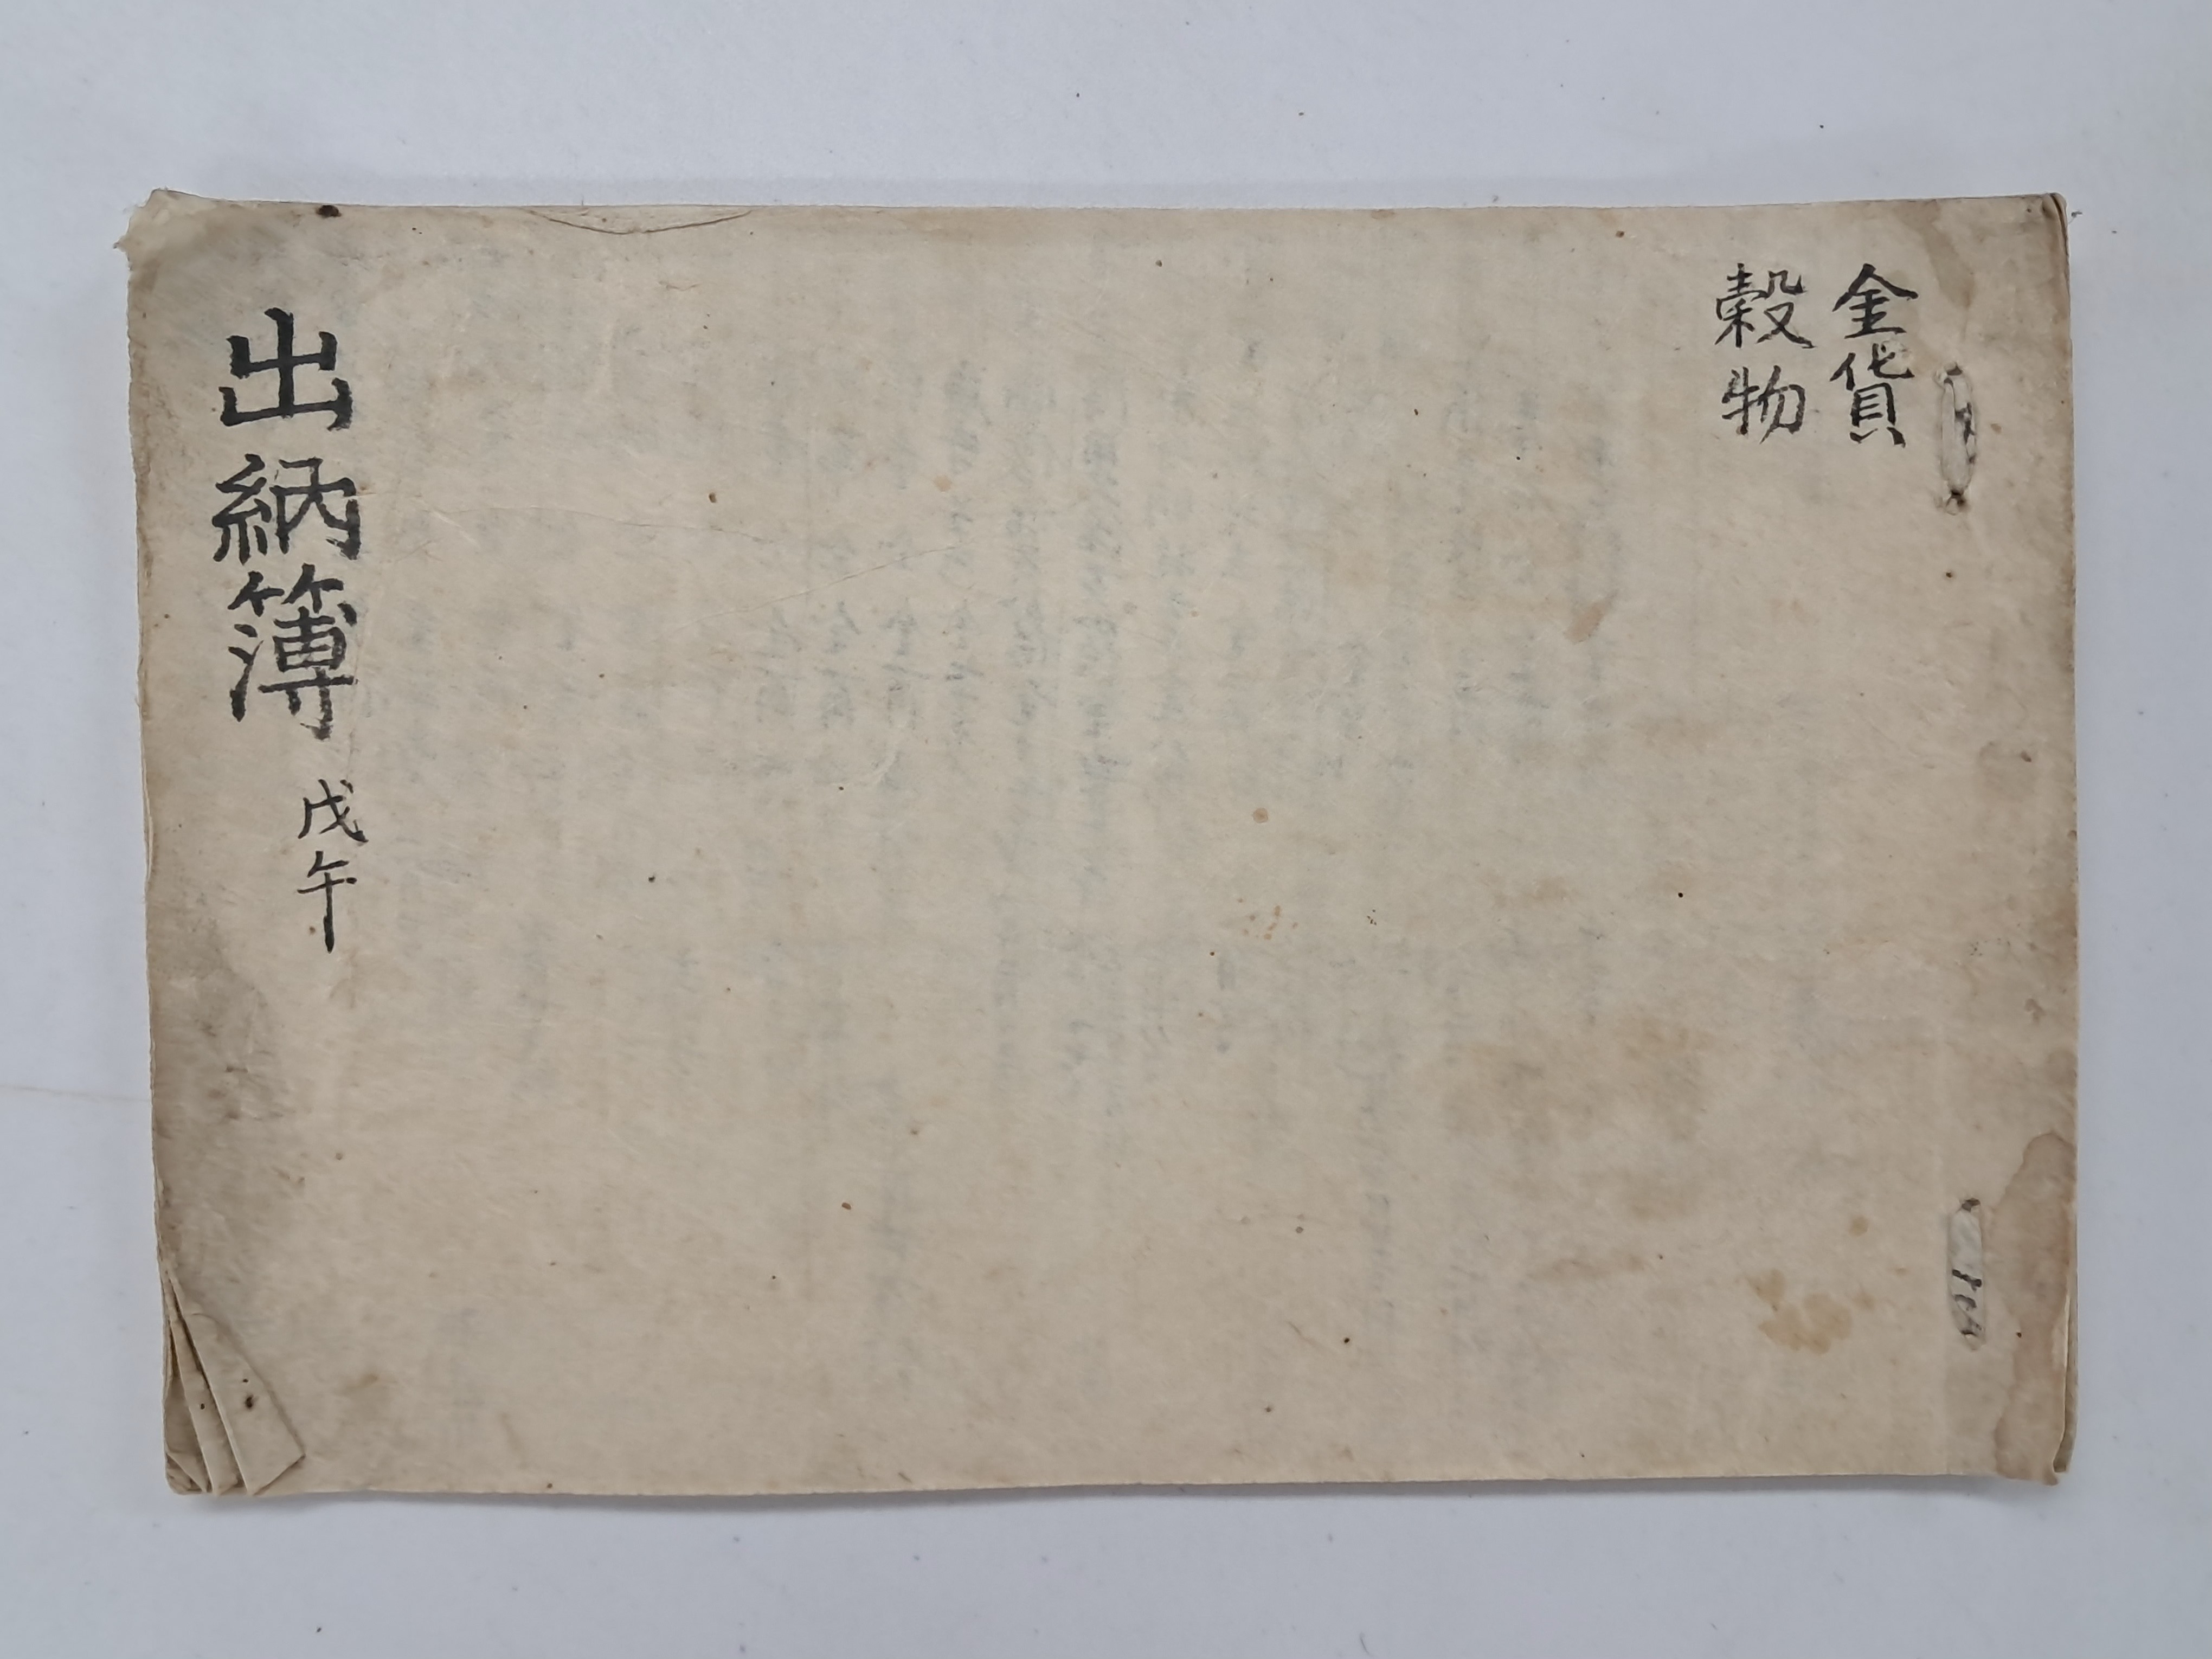 金貨
穀物
出納簿 戊午